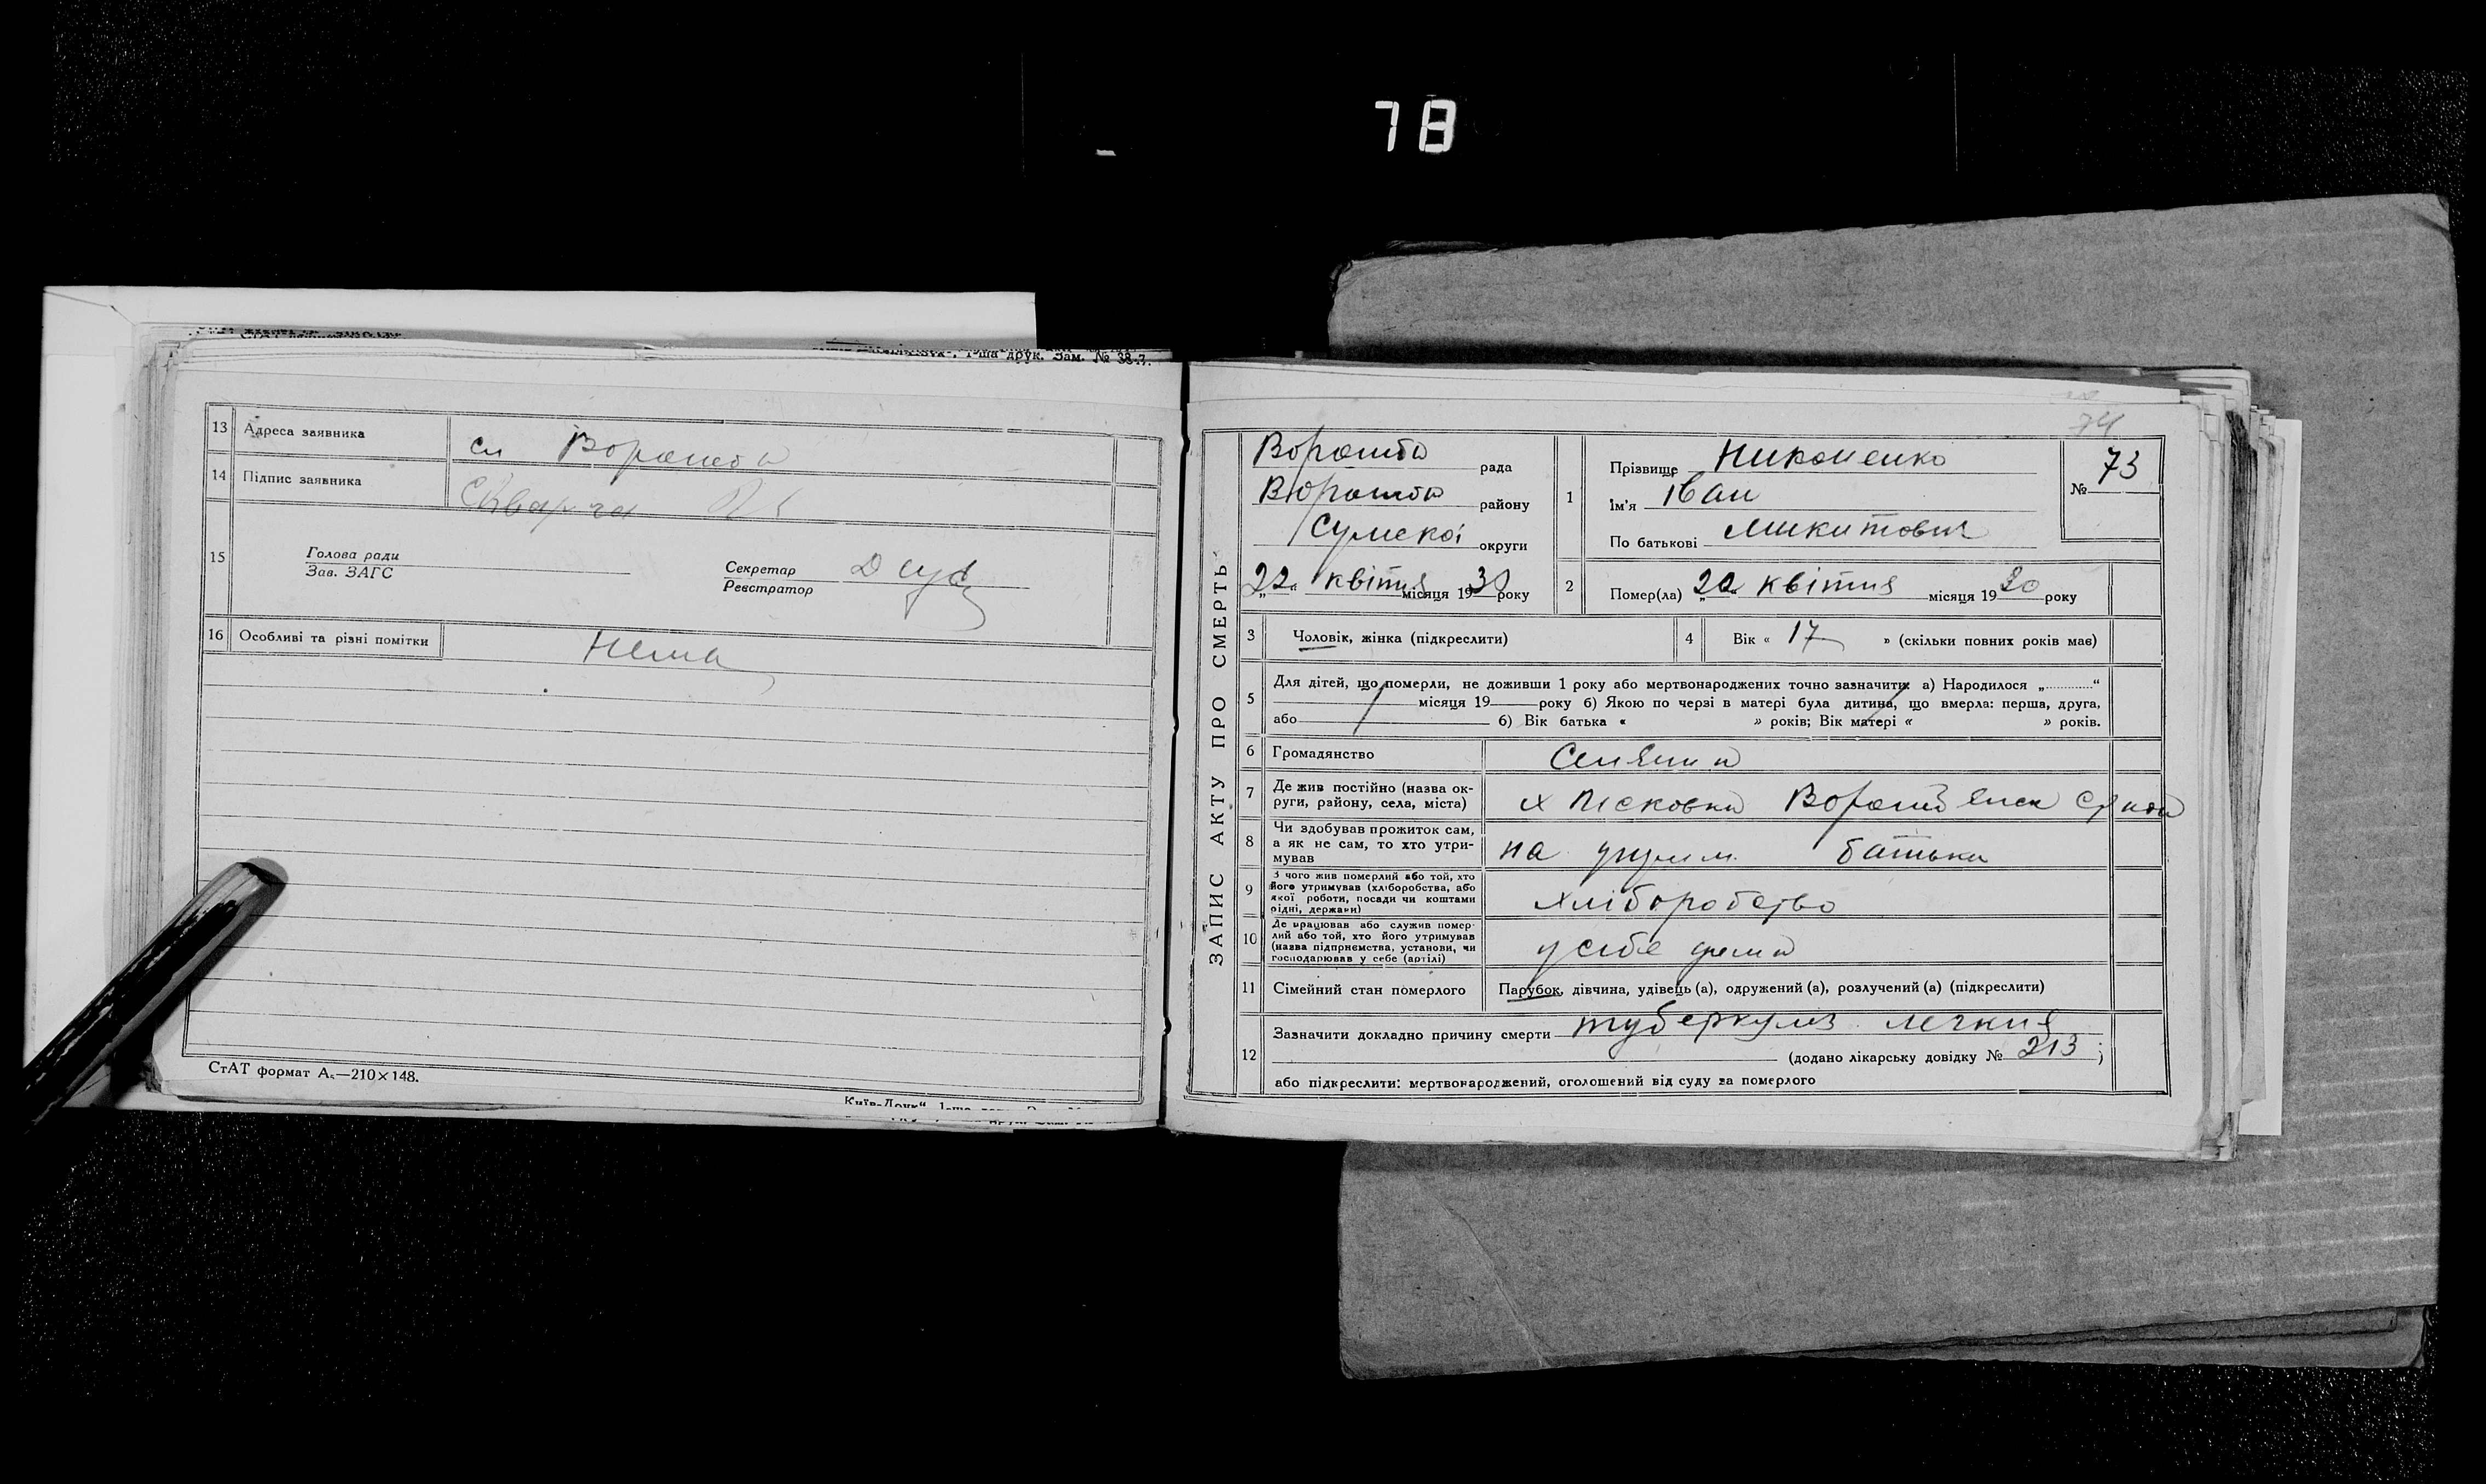 78
1-ша друк. Зам. № 38-7.
13 Адреса заявника сл Ворожба
14 Підпис заявника
15 Голова ради
Зав. ЗАГС
Секретар
Реєстратор
16 Особливі та різні помітки Нема
СтАТ формат А₅—210×148.
74
ЗАПИС АКТУ ПРО СМЕРТЬ
Ворожба рада
Ворожба району
Сумскоі округи
„22“ квітня місяця 1930 року
1 Прізвище Никоненко
Ім'я Іван
По батькові Микитович
№ 73
2 Помер(ла) „22“ квітня місяця 1930 року
3 Чоловік, жінка (підкреслити)
4 Вік « 17 » (скільки повних років має)
5 Для дітей, що померли, не доживши 1 року або мертвонароджених точно зазначити: а) Народилося „............“
місяця 19 року б) Якою по черзі в матері була дитина, що вмерла: перша, друга,
або б) Вік батька « » років; Вік матері « » років.
6 Громадянство Селянин
7 Де жив постійно (назва ок-
руги, району, села, міста) х Пісковка
8 Чи здобував прожиток сам,
а як не сам, то хто утри-
мував на утрим. батька
9 З чого жив померлий або той, хто
його утримував (хліборобства, або
якої роботи, посади чи коштами
рідні, держави) хліборобство
10 Де працював або служив помер-
лий або той, хто його утримував
(назва підприємства, установи, чи
господарював у себе (артілі) у себе дома
11 Сімейний стан померлого Парубок, дівчина, удівець (а), одружений (а), розлучений (а) (підкреслити)
12 Зазначити докладно причину смерти туберкулз легкия
(додано лікарську довідку № 213 ;
або підкреслити: мертвонароджений, оголошений від суду за померлого